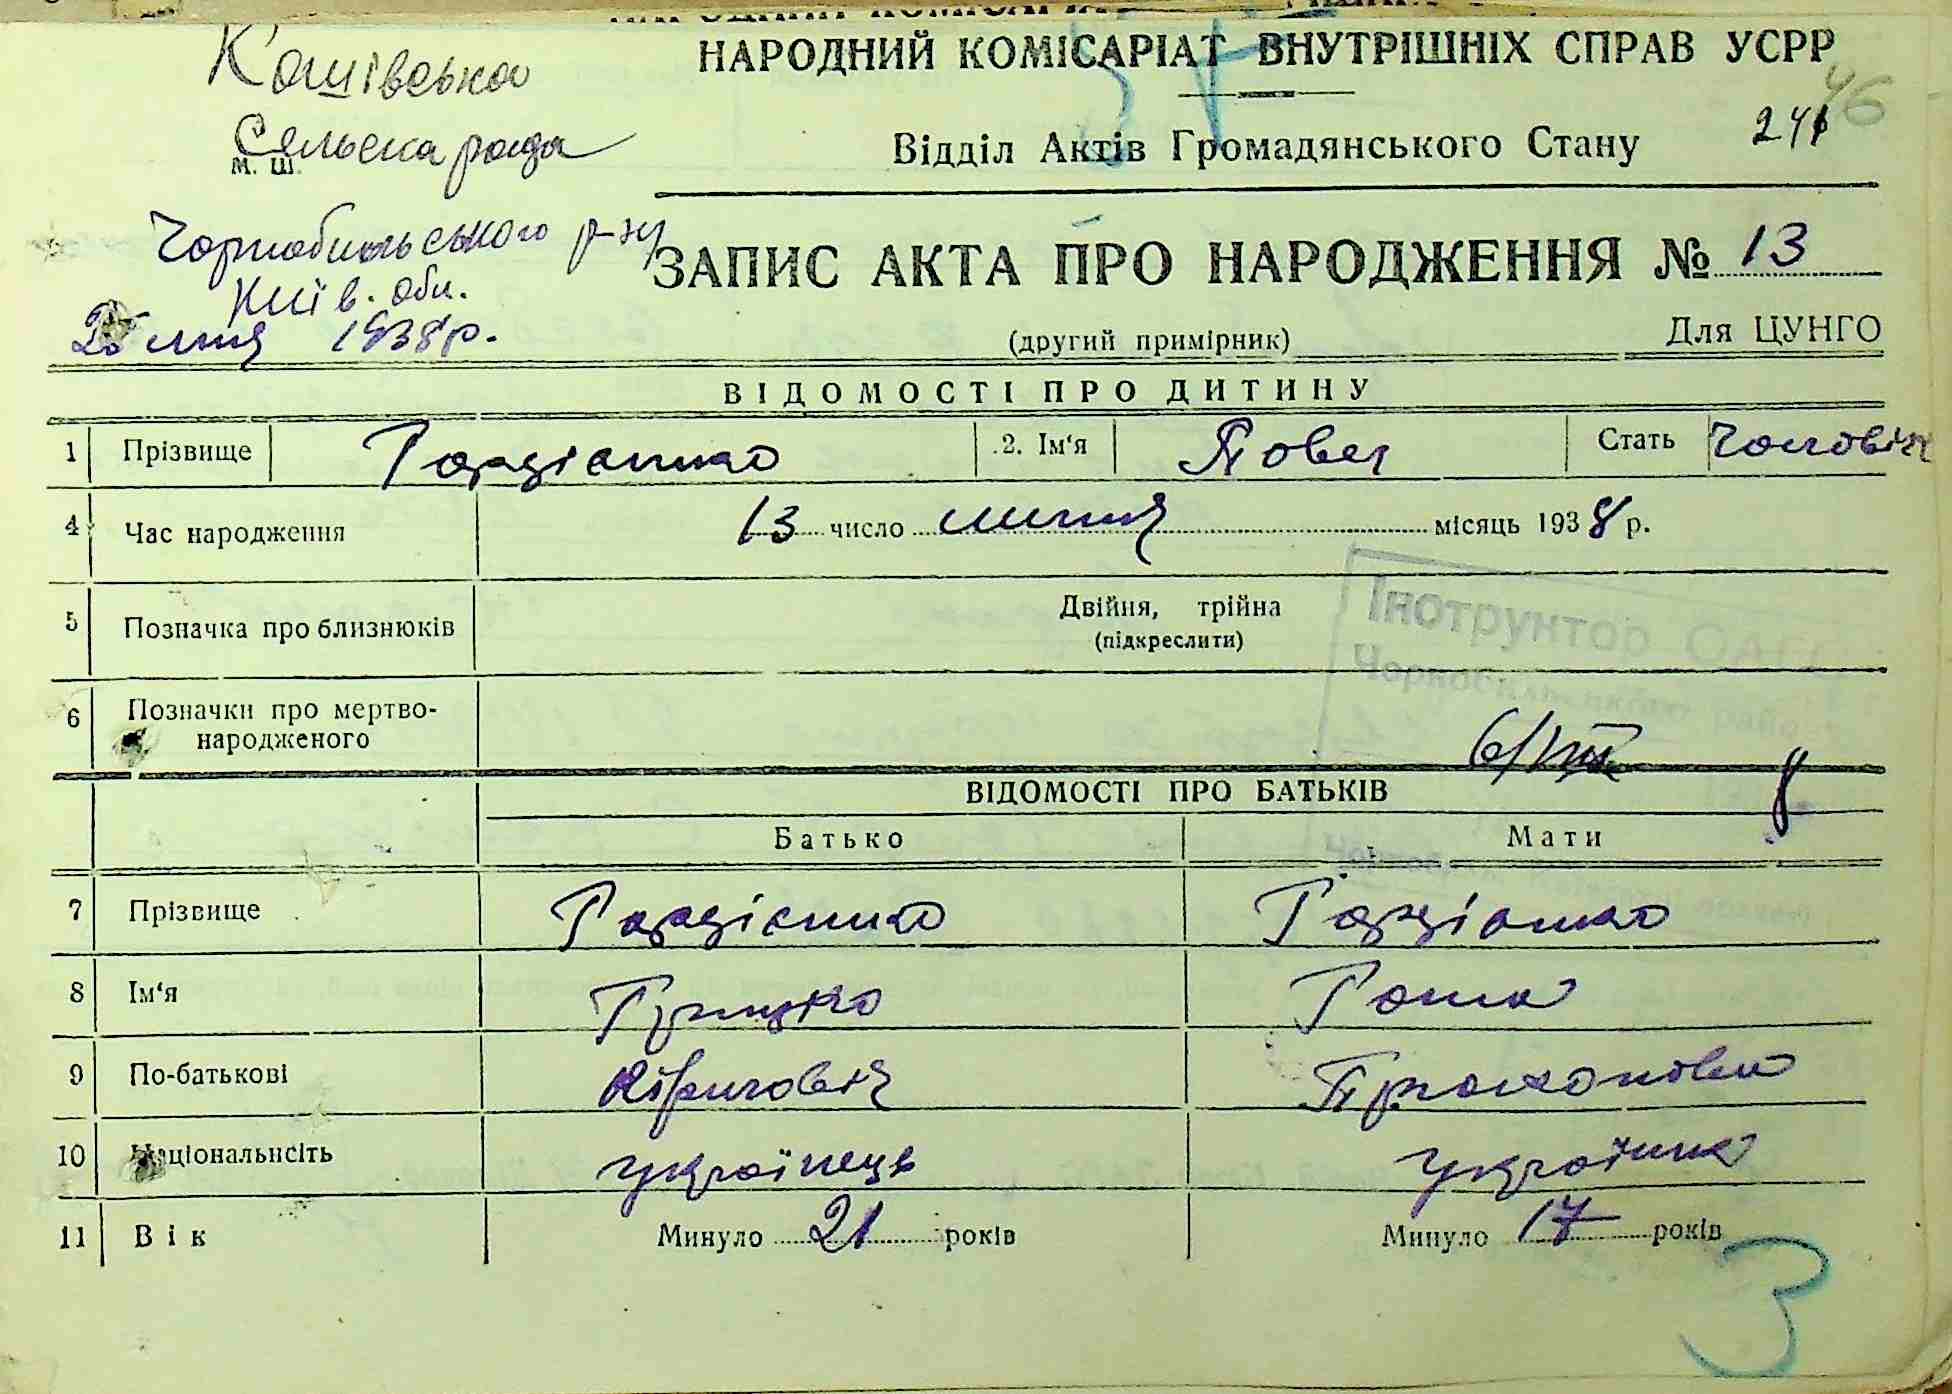 НАРОДНИЙ КОМІСАРІАТ ВНУТРІШНІХ СПРАВ УСРР
46
Кошівська
Сельска рада
м. ш.
Відділ Актів Громадянського Стану
241
Чорнобильського р-ну
Київ. обл.
ЗАПИС АКТА ПРО НАРОДЖЕННЯ № 13
липня 1938 р.
(другий примірник)
Для ЦУНГО
ВІДОМОСТІ ПРО ДИТИНУ
1 Прізвище 2. Ім'я Павел Стать Чоловіч
4 Час народження 13 число липня місяць 1938 р.
5 Позначка про близнюків Двійня, трійна
(підкреслити)
Інструктор ОАГС
Чорнобильського район
6 Позначки про мертво-
народженого
6/VIII
ВІДОМОСТІ ПРО БАТЬКІВ
Батько Мати
7 Прізвище
8 Ім'я Грицько
9 По-батькові Прохоновна
10 Національність українець українка
11 Вік Минуло 21 років Минуло 17 років
3